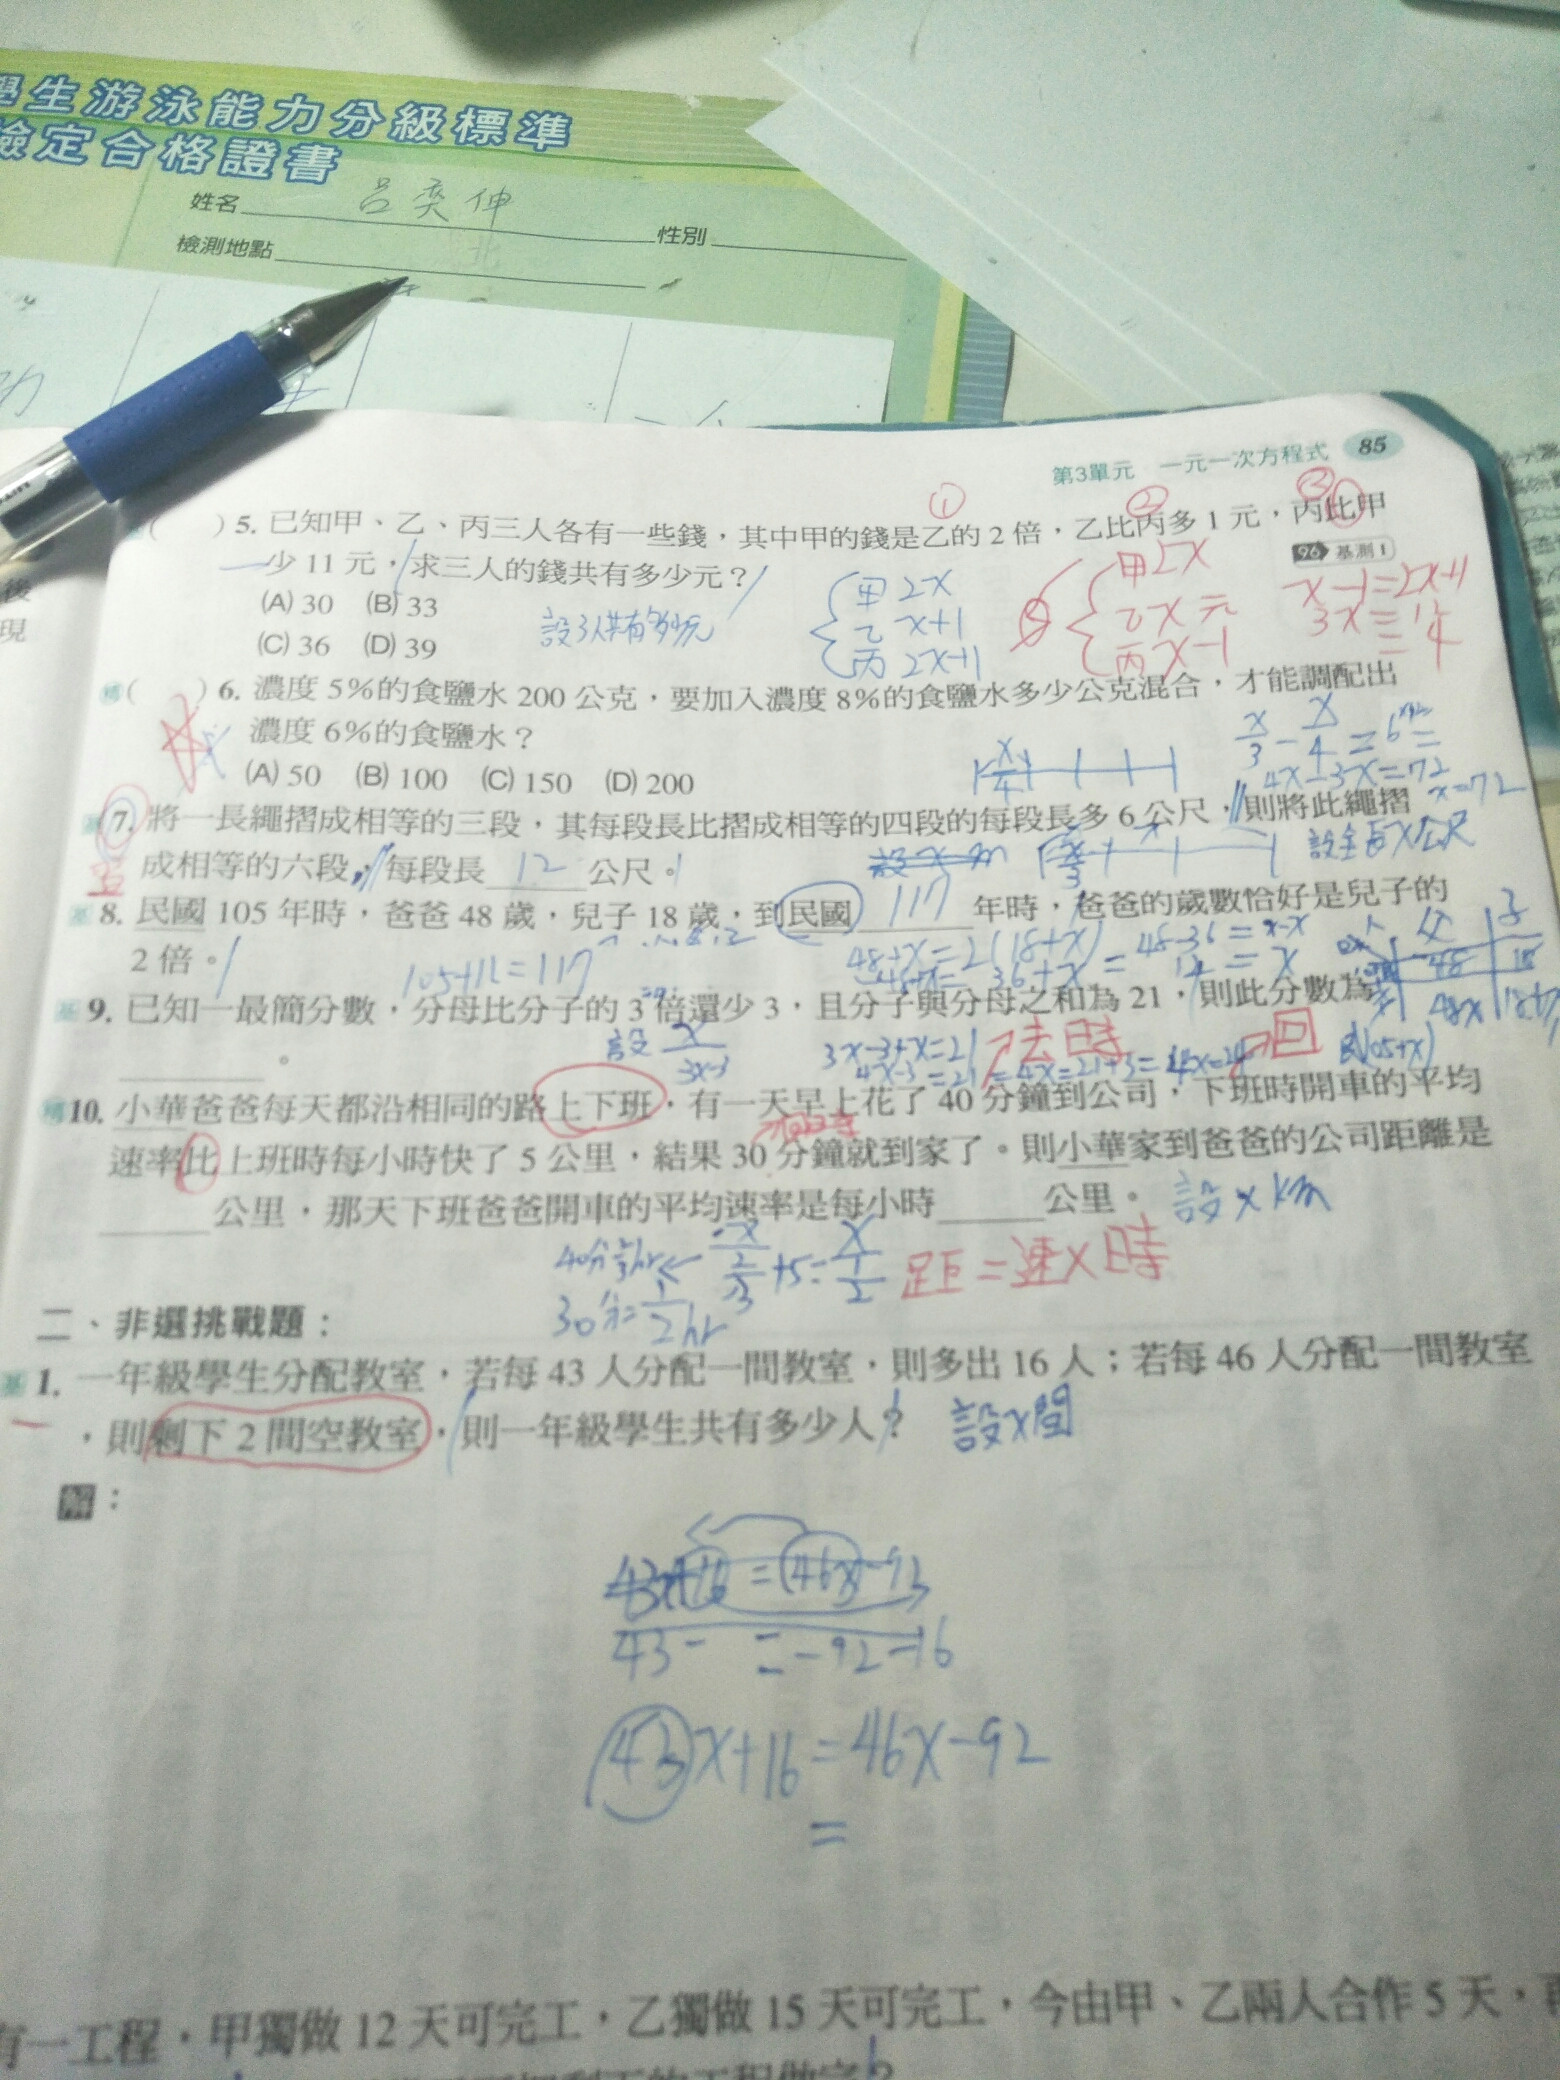 學生游泳能力分級標準
檢定合格證書
姓名 呂奕伸
性別
檢測地點
第3單元 一元一次方程式 85
( ) 5. 已知甲、乙、丙三人各有一些錢，其中甲的錢是乙的 2 倍，乙比丙多 1 元，丙比甲
少 11 元，求三人的錢共有多少元？
96 基測 I
(A) 30 (B) 33
(C) 36 (D) 39
設3人共有多少元
甲 2x
乙 x+1
丙 2x-11
甲 2x
乙 x 元
丙 x-1
( ) 6. 濃度 5%的食鹽水 200 公克，要加入濃度 8%的食鹽水多少公克混合，才能調配出
濃度 6%的食鹽水？
(A) 50 (B) 100 (C) 150 (D) 200
4x-3x=72
x=72
7. 將一長繩摺成相等的三段，其每段長比摺成相等的四段的每段長多 6 公尺，則將此繩摺
成相等的六段，每段長 12 公尺。
設全長x公尺
8. 民國 105 年時，爸爸 48 歲，兒子 18 歲，到民國 117 年時，爸爸的歲數恰好是兒子的
2 倍。
105+12=117
48+x=2(18+x)
9. 已知一最簡分數，分母比分子的 3 倍還少 3，且分子與分母之和為 21，則此分數為
。
設 x/3x-3
3x-3+x=21
去時
回
10. 小華爸爸每天都沿相同的路上下班，有一天早上花了 40 分鐘到公司，下班時開車的平均
速率比上班時每小時快了 5 公里，結果 30 分鐘就到家了。則小華家到爸爸的公司距離是
公里，那天下班爸爸開車的平均速率是每小時 公里。
設 x km
距=速×時
30分=1/2hr
二、非選挑戰題：
1. 一年級學生分配教室，若每 43 人分配一間教室，則多出 16 人；若每 46 人分配一間教室
，則剩下 2 間空教室，則一年級學生共有多少人？
設x間
解：
43- =-92-16
43x+16=46x-92
=
有一工程，甲獨做 12 天可完工，乙獨做 15 天可完工，今由甲、乙兩人合作 5 天，